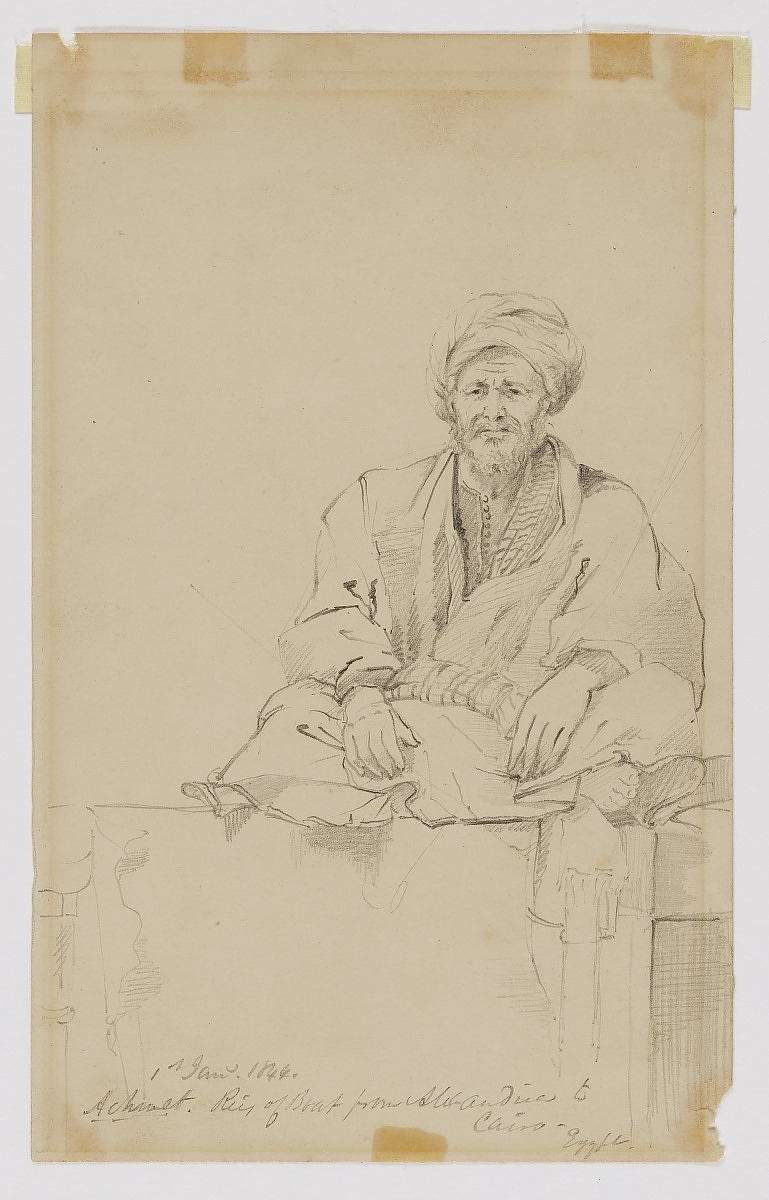 1st Jany. 1844.
Achmet. Reis of Boat from Alexandria to
Cairo -
Egypt.